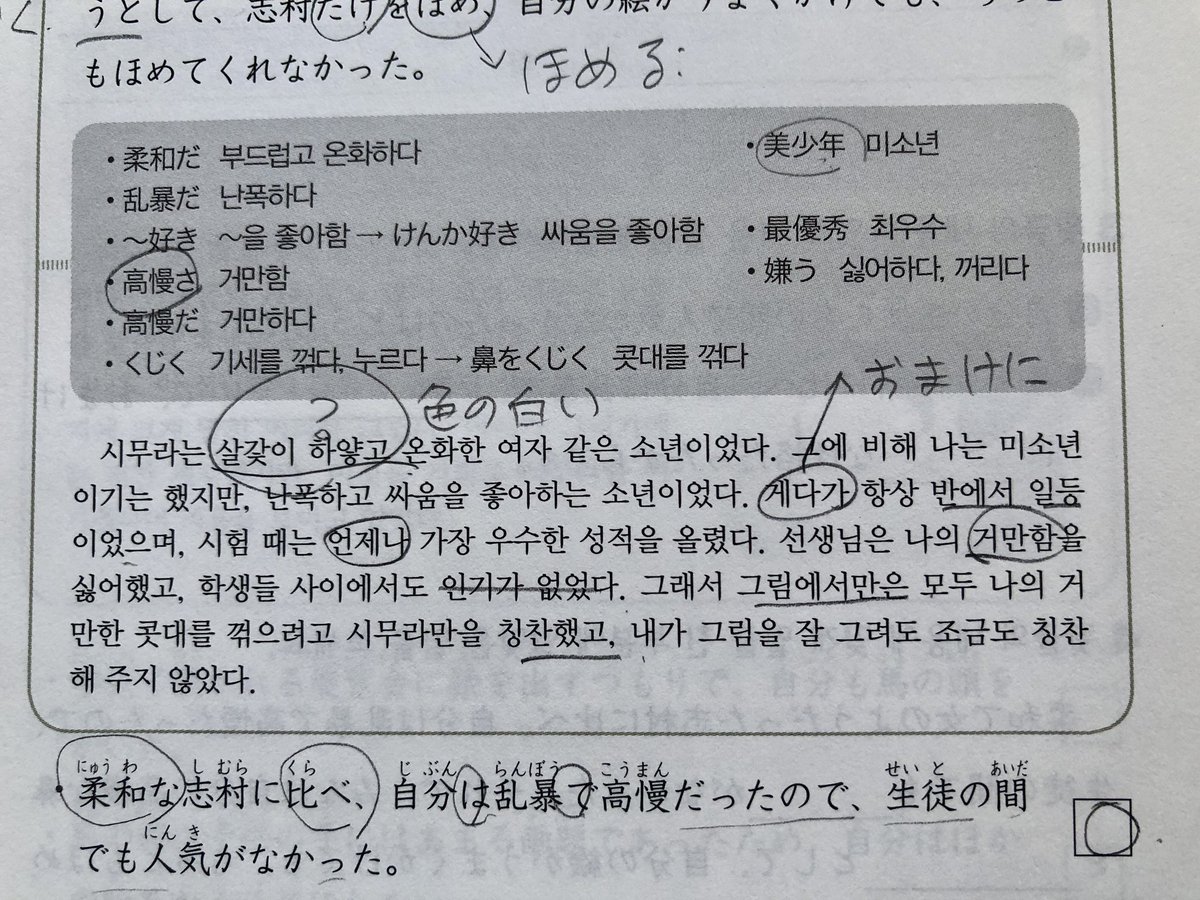 うとして、志村だけをほめ、自分の絵がうまくかけても、
もほめてくれなかった。
ほめる:
・柔和だ 부드럽고 온화하다
・美少年 미소년
・乱暴だ 난폭하다
・～好き ～을 좋아함 → けんか好き 싸움을 좋아함
・最優秀 최우수
・高慢さ 거만함
・嫌う 싫어하다, 꺼리다
・高慢だ 거만하다
・くじく 기세를 꺾다, 누르다 → 鼻をくじく 콧대를 꺾다
? 色の白い
おまけに
시무라는 살갗이 하얗고 온화한 여자 같은 소년이었다. 그에 비해 나는 미소년
이기는 했지만, 난폭하고 싸움을 좋아하는 소년이었다. 게다가 항상 반에서 일등
이었으며, 시험 때는 언제나 가장 우수한 성적을 올렸다. 선생님은 나의 거만함을
싫어했고, 학생들 사이에서도 인기가 없었다. 그래서 그림에서만은 모두 나의 거
만한 콧대를 꺾으려고 시무라만을 칭찬했고, 내가 그림을 잘 그려도 조금도 칭찬
해 주지 않았다.
にゅうわ しむら くら じぶん らんぼう こうまん せいと あいだ
・柔和な志村に比べ、自分は乱暴で高慢だったので、生徒の間
にんき
でも人気がなかった。